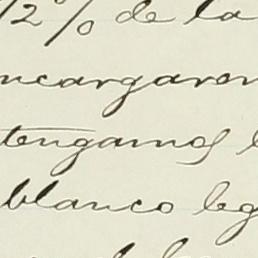 /2% de la
ncargaren
tengamos
blanco leg